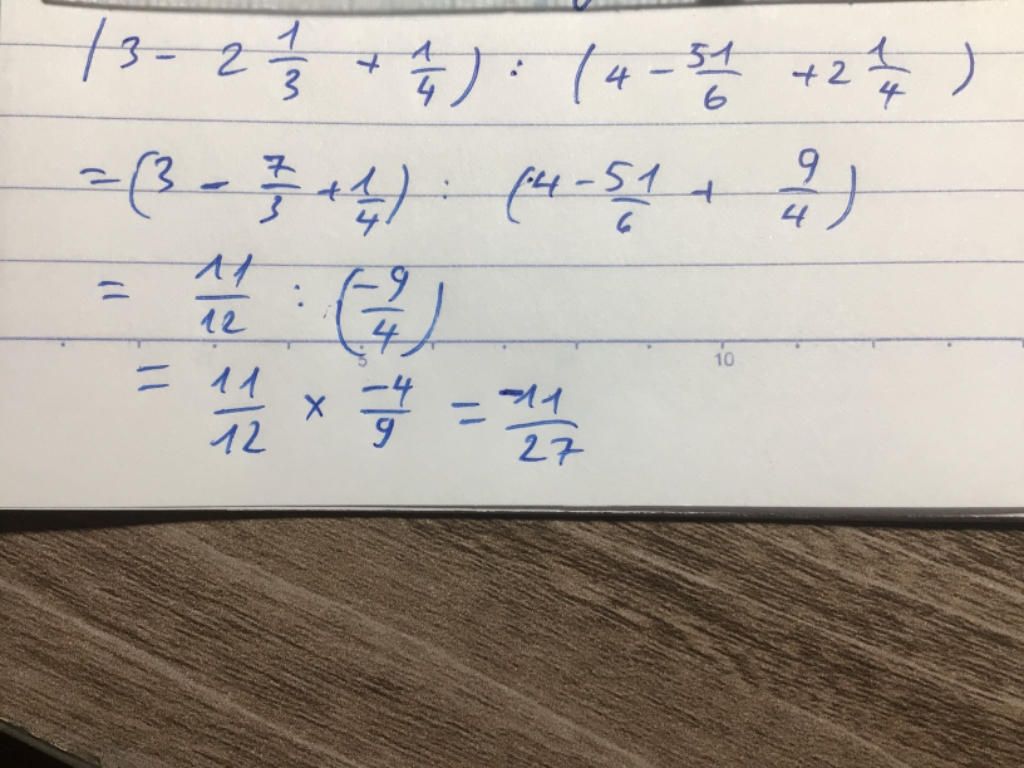 (3 - 2 1/3 + 1/4) : (4 - 51/6 + 2 1/4)
= (3 - 7/3 + 1/4) : (4 - 51/6 + 9/4)
= 11/12 : (-9/4)
5 10
= 11/12 × -4/9 = -11/27